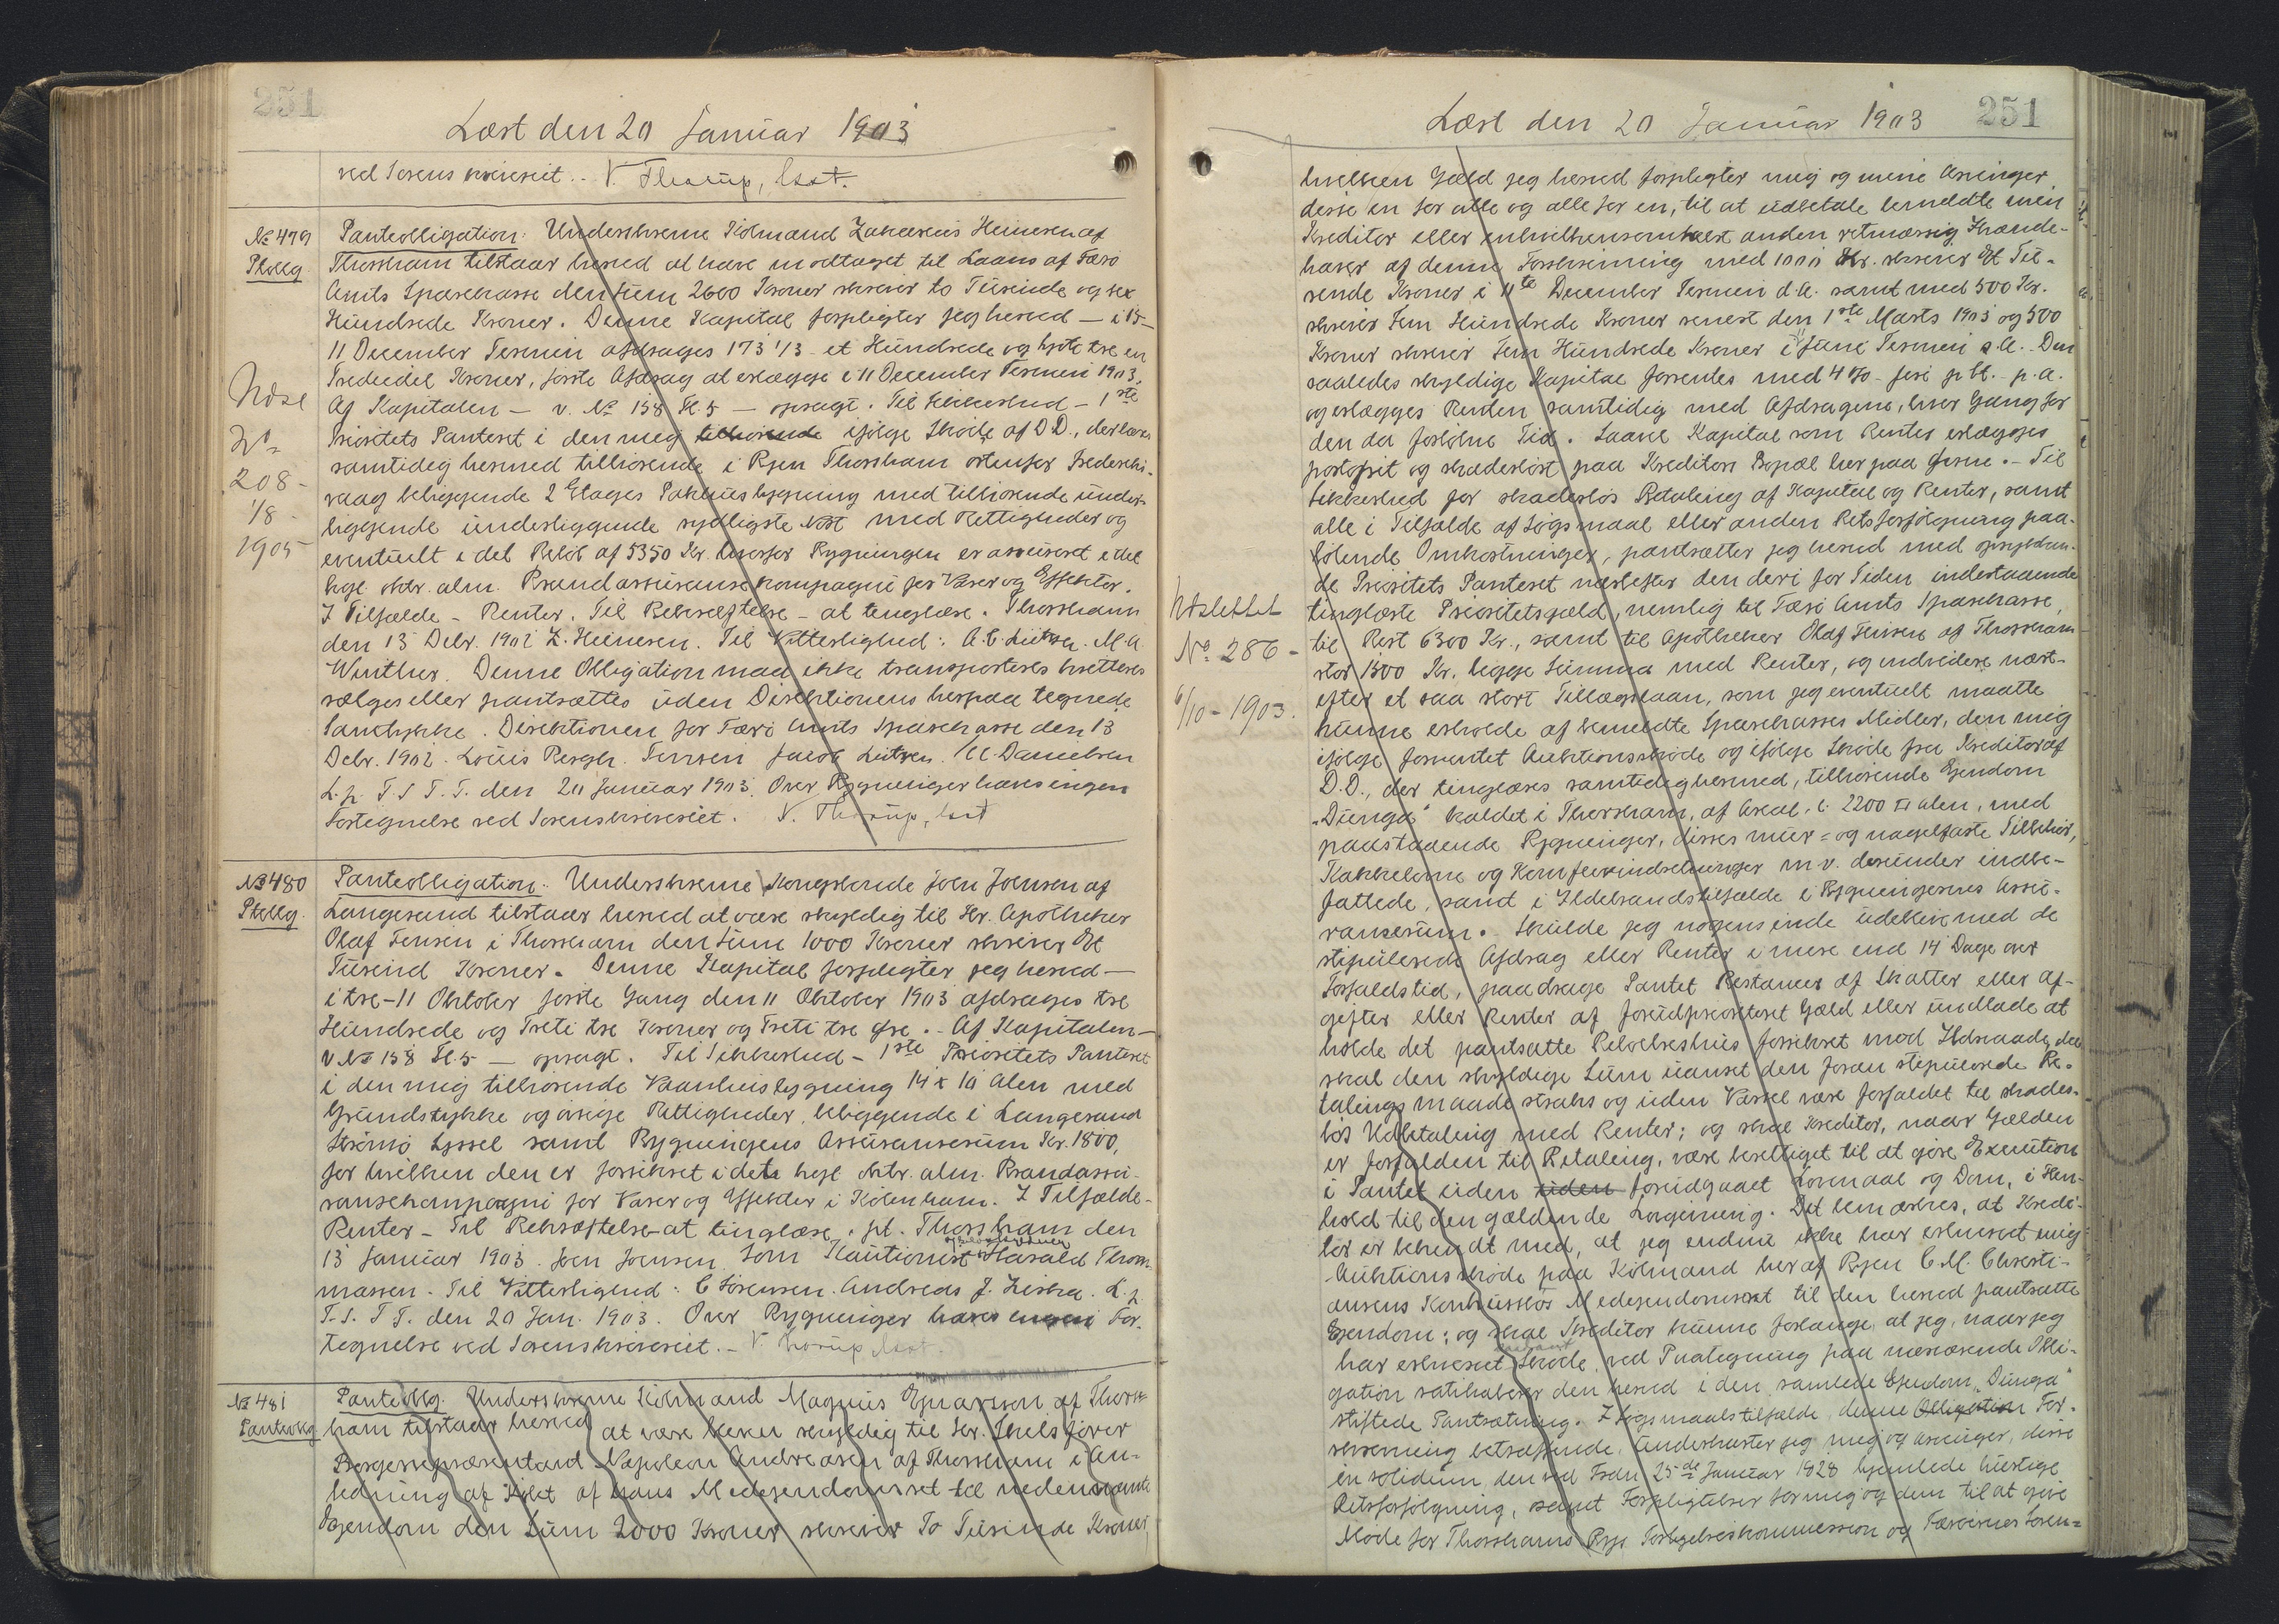 251
Læst den 20 Januar 1903
ved Sorenskriveriet. V. Thorup, Csst.
No 479
Pkoblg.
Panteobligation: Underskrevne Kömand Zakarius Heinesen af
Thorshavn tilstaar herved at have modtaget til Laans af Færö
Amts Sparekasse den Sum 2600 Kroner skriver to Tusinde og sex
Hundrede Kroner. Denne Kapital forpligter jeg herved - i 15 -
11 December Termin afdrages 173 1/3 - et Hundrede og tre en
Trediedel Kroner, förste Afdrag at erlægge i 11 December Termin 1903.
Af Kapitalen - v. No 158 Fl. 5 - opsagt. Til Sikkerhed - 1ste
Prioritets Panteret i den mig tilhörende ifölge Sköde af D.D., der læses
samtidig hermed tilhörende i Byen Thorshavn östenfor
vaag beliggende 2 Etages Pakhusbygning med tilhörende under-
liggende underliggende sydligste Nöst med Rettigheder og
eventuelt i det Belöb af 5350 Kr. hvorfor Bygningen er assureret i det
kgl. oktr. alm. Brandassuranse kompagni for Varer og Effekter.
I Tilfælde - Renter. Til Bekræftelse - at tinglæse. Thorshavn
den 13 Debr. 1902 Z. Heinesen. Til Vitterlighed: A. C. Lützen. M. A.
Winther. Denne Obligation maa ikke transporteres
sælges eller pantsættes uden Direktionens herpaa tegnede
Samtykke. Direktionen for Færö Amts Sparekasse den 13
Debr. 1902. Louis Bergh. Jensen Jacob Lützen. M Danielsen
L. p. T. S T. T. den 20 Januar 1903. Over Bygninger haves ingen
Fortegnelse ved Sorenskriveriet. V. Thorup, Csst
No 208 -
1/8 -
1905
No 480
Pkoblg.
Panteobligation: Underskrevne Kongsbonde Joen Joensen af
Langesand tilstaar herved at være skyldig til Hr. Apotheker
Olaf Jensen i Thorshavn den Sum 1000 Kroner skriver Et
Tusind Kroner. Denne Kapital forpligter jeg herved -
i tre - 11 Oktober förste Gang den 11 Oktober 1903 afdrages tre
Hundrede og Treti tre Kroner og Treti tre Öre. - Af Kapitalen -
v. No 158 Fl. 5 - opsagt. Til Sikkerhed - 1ste Prioritets Panteret
i den mig tilhörende Vaanhusbygning 14 x 10 Alen med
Grundstykke og övrige Rettigheder, beliggende i Langesand
Strömö Syssel samt Bygningens Assuransesum Kr. 1800,
for hvilken den er forsikret i det kgl. oktr. alm. Brandassu-
ransekompagni for Varer og Effekter i Köbenhavn. I Tilfælde -
Renter - Til Bekræftelse at tinglæse. pt. Thorshavn den
13 Januar 1903. Joen Joensen. Som Kautionist Harald Thom-
massen. Til Vitterlighed: C Sörensen. Andreas J. Ziska. L. p.
T. S. T T. den 20 Jan. 1903. Over Bygninger haves ingen For-
tegnelse ved Sorenskriveriet. - V. Thorup Csst.
No 481
Panteoblg
Panteoblg. Underskrevne Kömand Magnus Ejnarsson af Thors-
havn tilstaar herved at være bleven skyldig til Hr.
Borgerrepræsentant Napoleon Andreasen af Thorshavn i An-
ledning af Köbet af hans Medejendomsret til nedennævnte
Ejendom den Sum 2000 Kroner skriver To Tusinde Kroner,
Læst den 20 Januar 1903 251
hvilken Gæld jeg herved forpligter mig og mine Arvinger
disse en for alle og alle for en, til at udbetale bemeldte min
Kreditor eller enhvilkensomhelst anden retmæssig Ihænde-
haver af denne Forskrivning med 1000 Kr. skriver Et Tu-
sende Kroner i 11te December Termin d. A. samt med 500 Kr.
skriver Fem Hundrede Kroner senest den 1ste Marts 1903 og 500
Kroner skriver Fem Hundrede Kroner i 11 Juni Termin s. A. - Den
saaledes skyldige Kapital forrentes med 4 % - fire p Ct. - p. a.
og erlægges Renten samtidig med Afdragene, hver Gang for
den da forlöbne Tid. Saavel Kapital som Renter erlægges
portofrit og skadeslöst paa Kreditors Bopæl her paa Öerne. - Til
Sikkerhed for skadeslös Betaling af Kapital og Renter, samt
alle i Tilfælde af Sögsmaal eller anden Retsforfölgning paa-
löbende Omkostninger, pantsætter jeg herved med opryken-
de Prioritets Panteret næstefter den deri for Tiden indestaaende
tinglæste Prioritetsgæld, nemlig til Færö Amts Sparekasse,
til Rest 6300 Kr., samt til Apotheker Olaf Jensen af Thorshavn
stor 1500 Kr. begge Summa med Renter, og endvidere næst-
efter et saa stort Tillægslaan, som jeg eventuelt maatte
kunne erholde af bemeldte Sparekasses Midler, den mig
ifölge forventet Auktionssköde og ifölge Sköde fra Kreditor af
D. D., der tinglæses samtidig hermed, tilhörende Ejendom
„Dunga" kaldet i Thorshavn, af Areal, c. 2200 □ Alen, med
paastaaende Bygninger, disses mur = og nagelfaste Tilbehör,
Kakkelovne og Komfurindretninger m. v. derunder indbe-
fattede, samt i Ildebrandstilfælde i Bygningernes Assu-
ransesum. Skulde jeg nogensinde udeblive med de
stipulerede Afdrag eller Renter i mere end 14 Dage over
Forfaldstid, paadrage Pantet Restancer af Skatter eller Af-
gifter eller Renter af forudprioriteret Gæld eller undlade at
holde det pantsatte Beboelseshus forsikret mod Ildsvaade, da
skal den skyldige Sum uanset den foran stipulerede Be-
talingsmaade straks og uden Varsel være forfaldet til skades-
lös Udbetaling med Renter; og skal Kreditor, naar Gælden
er forfalden til Betaling, være berettiget til at göre Execution
i Pantet uden uden forudgaaet Lovmaal og Dom, i Hen-
hold til den gældende Lovgivning. Det bemærkes, at Kredi-
tor er bekendt med, at jeg endnu ikke har erhvervet mig
Auktionssköde paa Kömand her af Byen C. M. Christi-
ansens Konkursbos Medejendomsret til den herved pantsatte
Ejendom; og skal Kreditor kunne forlange, at jeg, naar jeg
har erhvervet Sköde, ved Paategning paa nærværende Obli-
gation ratihaberer den herved i den samlede Ejendom „Dunga"
stiftede Pantsætning. I Sögsmaalstilfælde denne Obligation For-
skrivning betræffende, underkaster jeg mig og Arvinger, disse
in solidum, den ved Frdn. 25de Januar 1828 hjemlede hurtige
Retsforfölgning, samt Forpligtelser for mig og dem til at give
Möde for Thorshavns Byes Forligelseskommission og Færöernes Soren=
Udslettet
No 286 -
6/10 - 1903.